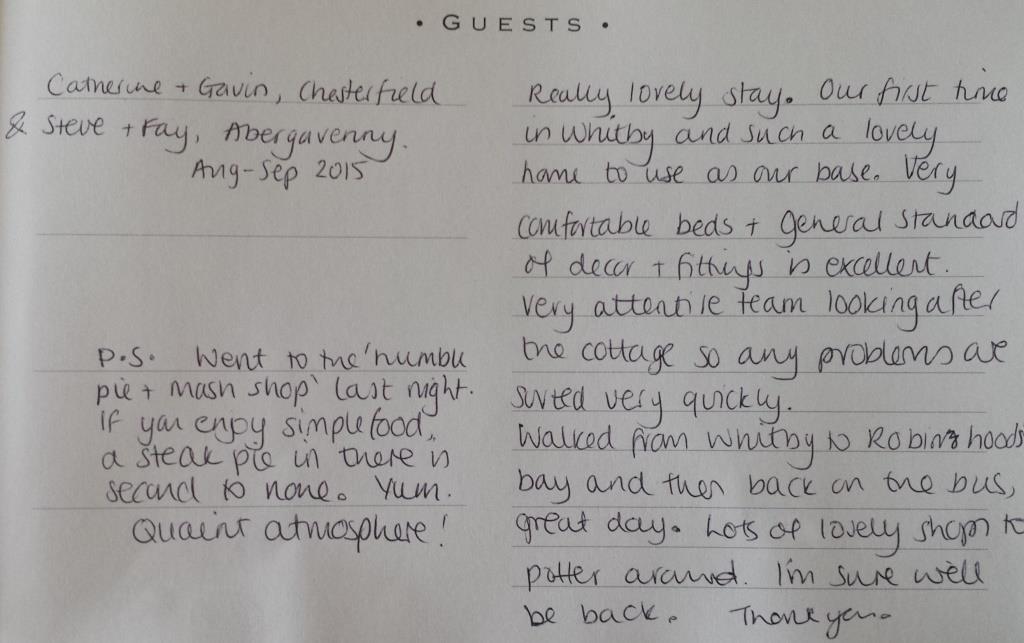 • GUESTS •
Catherine + Gavin, Chesterfield
& Steve + Fay, Abergavenny.
Aug-Sep 2015
P.S. Went to the 'humble
pie + mash shop' last night.
If you enjoy simple food,
a steak pie in there is
second to none. Yum.
Quaint atmosphere!
Really lovely stay. Our first time
in Whitby and such a lovely
home to use as our base. Very
comfortable beds + general standard
of decor + fittings is excellent.
Very attentive team looking after
the cottage so any problems are
sorted very quickly.
Walked from Whitby to Robin hoods
bay and then back on the bus,
great day. Lots of lovely shops to
potter around. I'm sure we'll
be back. Thank you.